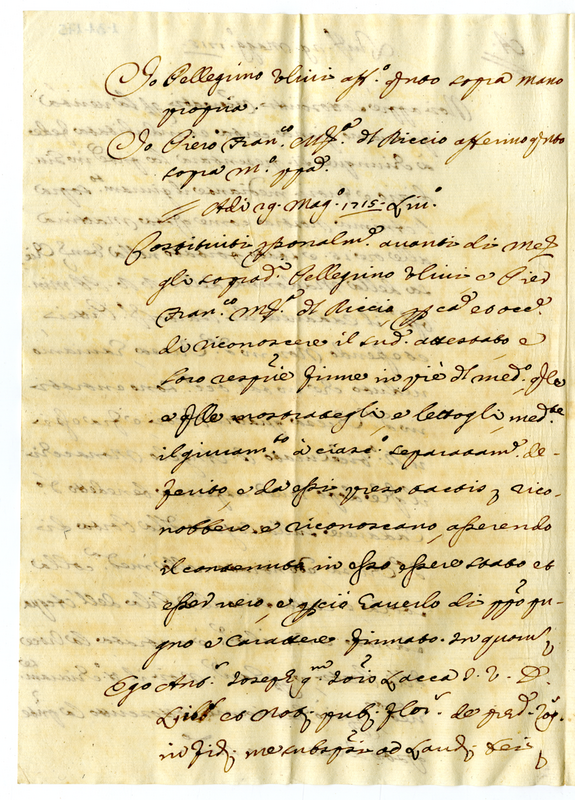 Io Pellegrino Ulivi aff.º q.nto sopra mano
propria
Io Piero Fran.co M.ª d̃l Riccio affermo q.nto
sopra m.º ppã.
Adi 29. Mag.º 1715. Liu.º
Costituiti p̃sonalm.e avanti di me
gli soprad.i Pellegrino Ulivi e Pier
Fran.co M.ª d̃l Riccio pp̃ cã et occ.e
di riconoscere il sud.º attestato e
loro respiẽ firme in piè d̃l med.º q̃le
e q̃lle mostrategli, e lettogli, med.te
il giuram.to à ciasc.º separatam.e de-
ferito, e da essi preso tacto p rico-
nobbero, e riconoscano, asserendo
il contenuto in esso essere stato et
esser vero, e p̃ciò haverlo di pp̃º pu-
gno e carattere firmato. In quor
Ego Ant.s Joseph q.m Lacca J. V. D.
Lib et Not. pub. Flor.s de pred.
in fid. me subsp̃si ad Laud. Dei